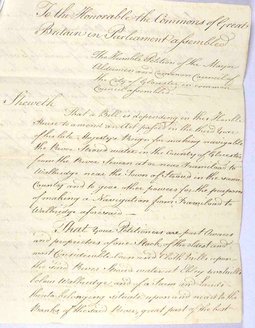 To the Honorable the Commons of Great
Britain in Parliament assembled
The Humble Petition of the Mayor
Aldermen and Common Council of
the City of Gloucester in common
Council assembled
Sheweth
That a Bill is depending in this Honble
House to amend an Act passed in the third Year
of his late Majestys Reign for making navigable
the River Stroud water in the County of Glocester
from the River Severn at or near Framiload to
Wallbridge near the Town of Stroud in the same
County and to give other powers for the purpose
of making a Navigation from Framiload to
Wallbridge aforesaid
That Your Petitioners are part Owners
and proprietors of one Stock of the
most Considerable and Cloth Mills upon
the said River Stroud water at
below Wallbridge and of a Farm and Lands
thereto belonging situate upon and next to the
Banks of the said River, great part of the best